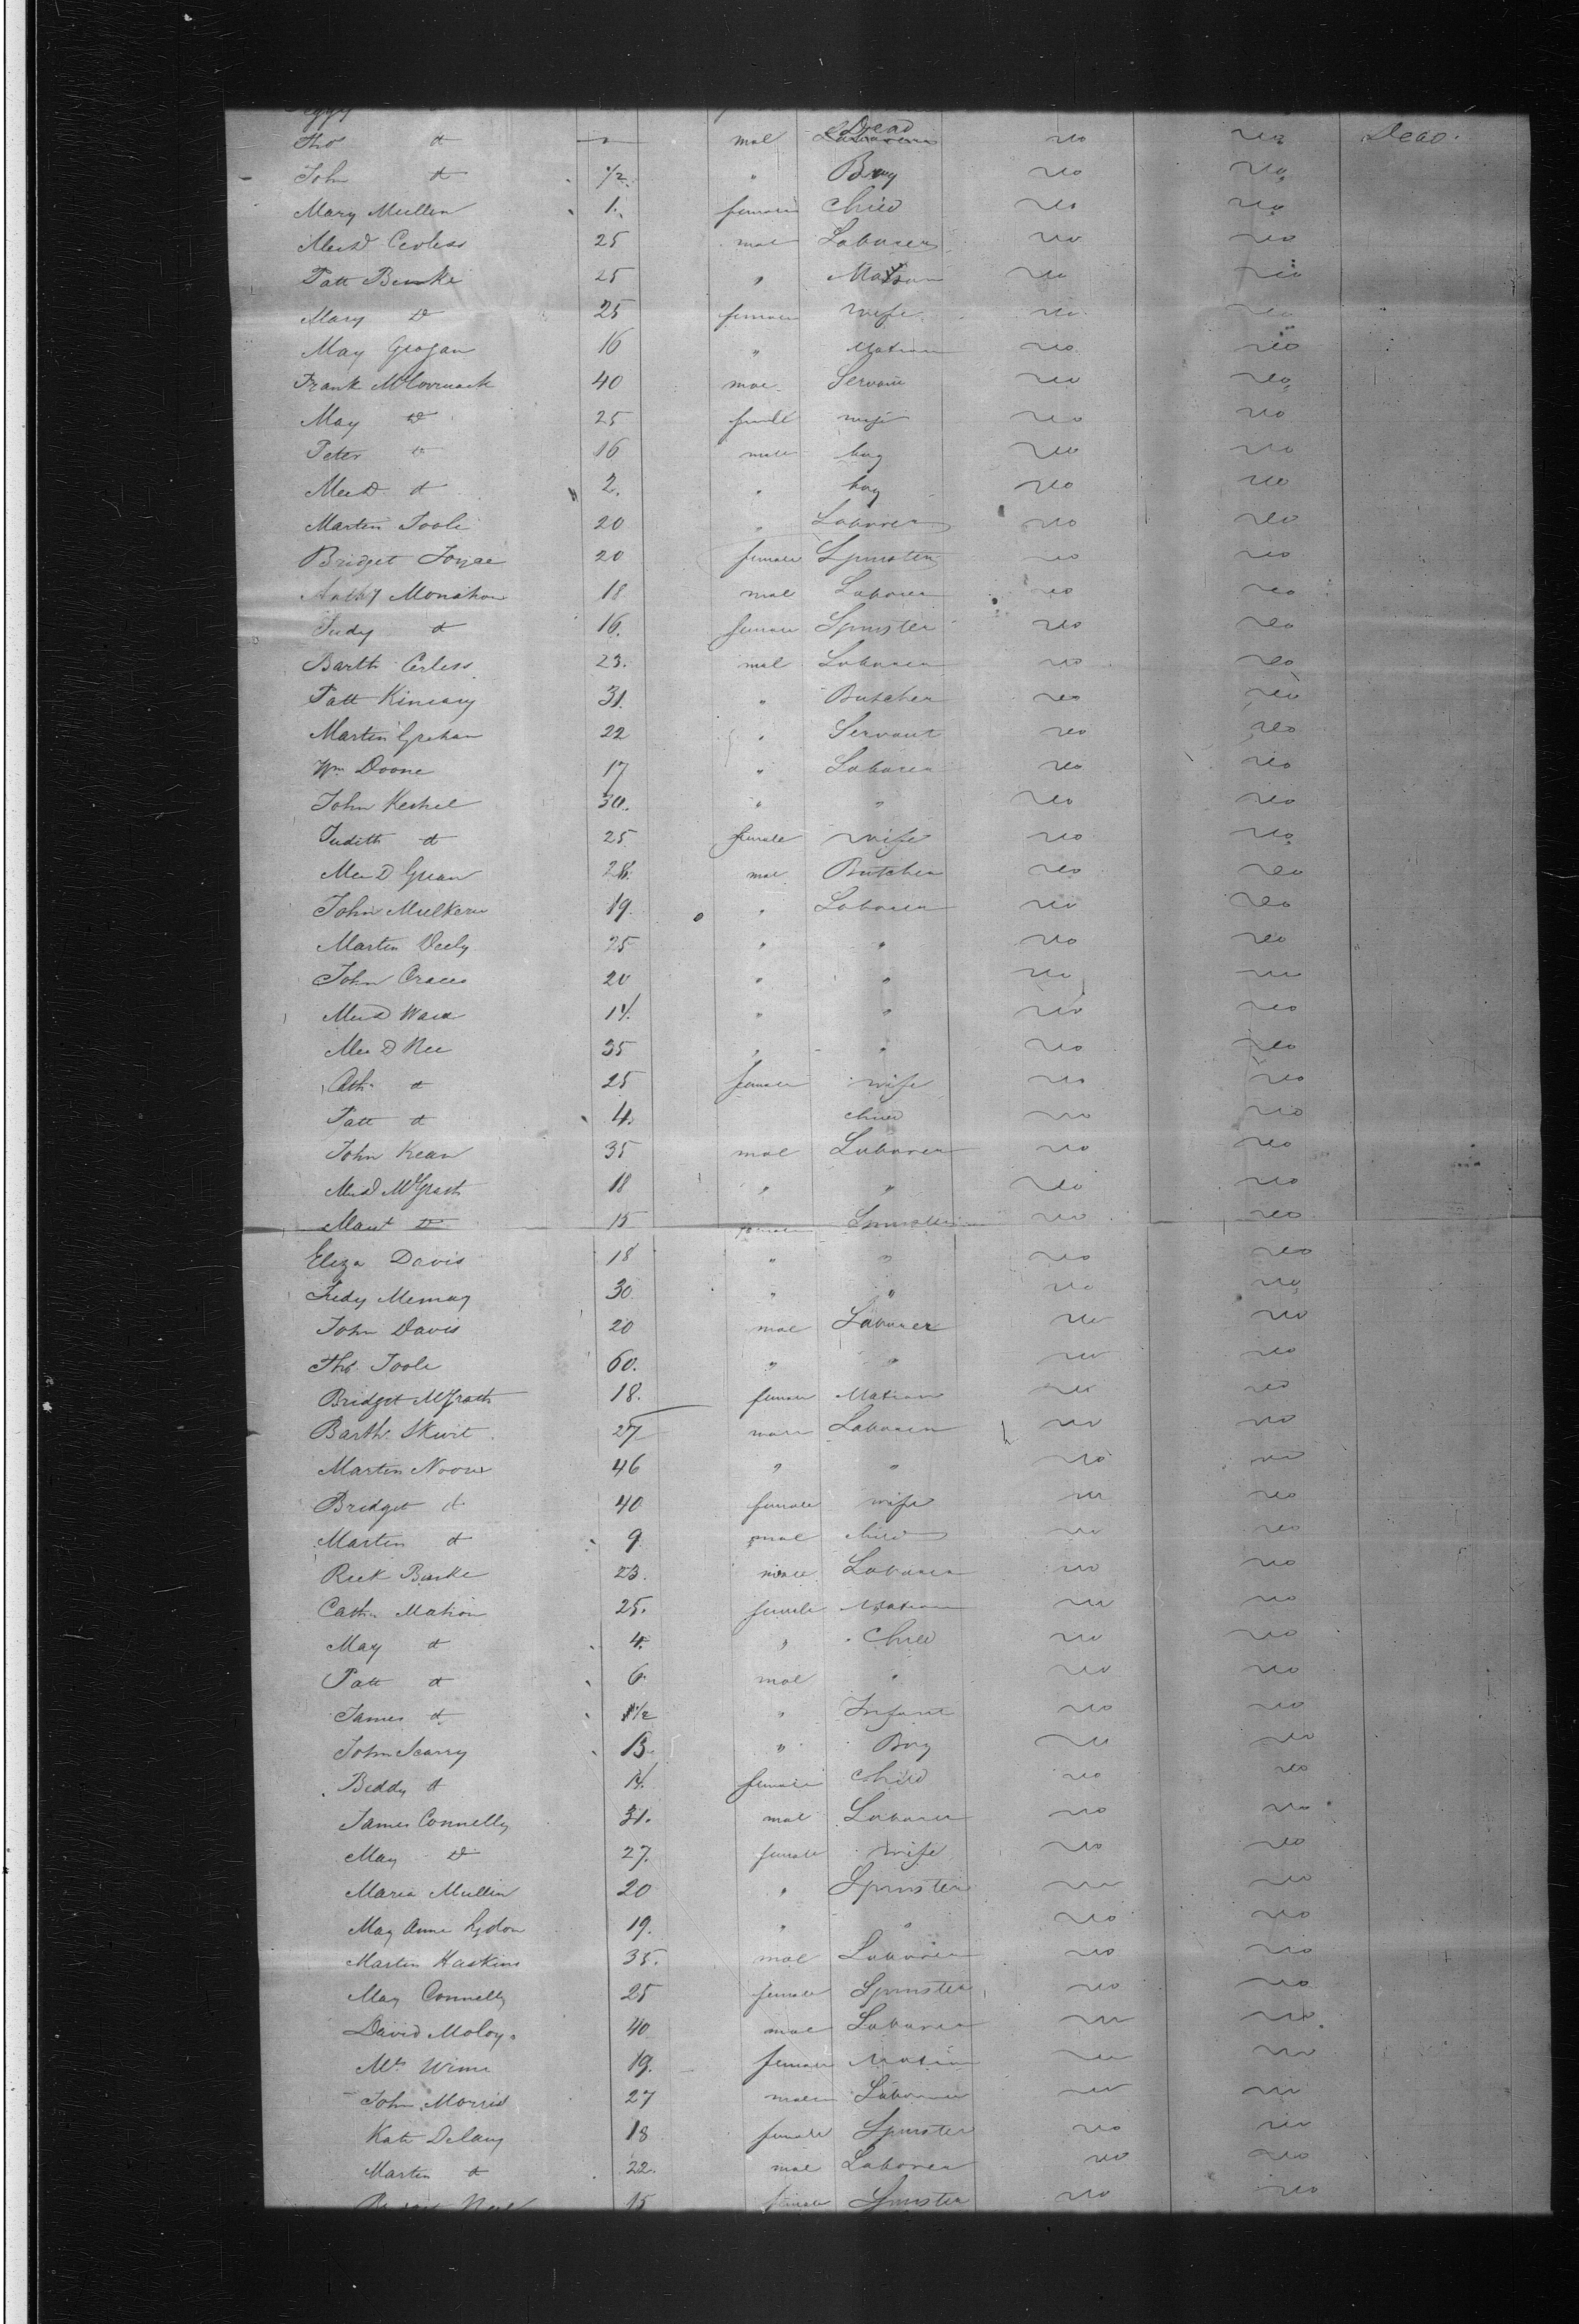 Tho do mal Dead no no Dead.
John do 1/2 " Boy no no
Mary Mullen 1. female child no no
25 mal Laborer no no
Patt Burke 25 " no no
Mary do 25 female wife no no
May Grogan 16 " Matron no no
Frank McCormack 40 mal Servant no no
May do 25 female wife no no
Peter do 16 male boy no no
do 2. " boy no no
Martin Toole 20 " Laborer no no
Bridget 20 female Spinster no no
Anthy Monahan 18 mal Laborer no no
Judy do 16. female Spinster no no
Barth Corless 23. mal Laborer no no
Patt 31. " Butcher no no
Martin Graham 22 " Servant no no
Wm Doone 17 " Laborer no no
John 30. " " no no
Judith do 25 female wife no no
28. mal Butcher no no
John Mulkern 19. " Laborer no no
Martin 25 " " no no
John 20 " " no no
Ward 14. " " no no
35 " " no no
Cath. do 25 female wife no no
Patt do 4. child no no
John Kean 35 mal Laborer no no
McGrath 18 " " no no
Mart do 15 female Spinster no no
Eliza Davis 18 " " no no
30 " " no no
John Davis 20 mal Laborer no no
Tho. Toole 60. " " no no
Bridget McGrath 18. female Matron no no
Barth. 27 male Laborer no no
Martin 46 " " no no
Bridget do 40 female wife no no
Martin do 9 mal child no no
Burke 23. male Laborer no no
Cath. 25. female Matron no no
May do 4. " Child no no
Patt do 6. mal " no no
James do 1 1/2 " Infant no no
John Scarry 13. " Boy no no
Biddy do 14. female child no no
James Connelly 31. mal Laborer no no
May do 27. female wife no no
Maria Mullin 20 " Spinster no no
May Anne Lydon 19. " " no no
Martin Haskins 35. mal Laborer no no
May Connelly 25 female Spinster no no
David Moloy. 40 mal Laborer no no
19. female Matron no no
John Morris 27 male Laborer no no
Kate Delany 18 female Spinster no no
Martin do 22. mal Laborer no no
15 female Spinster no no